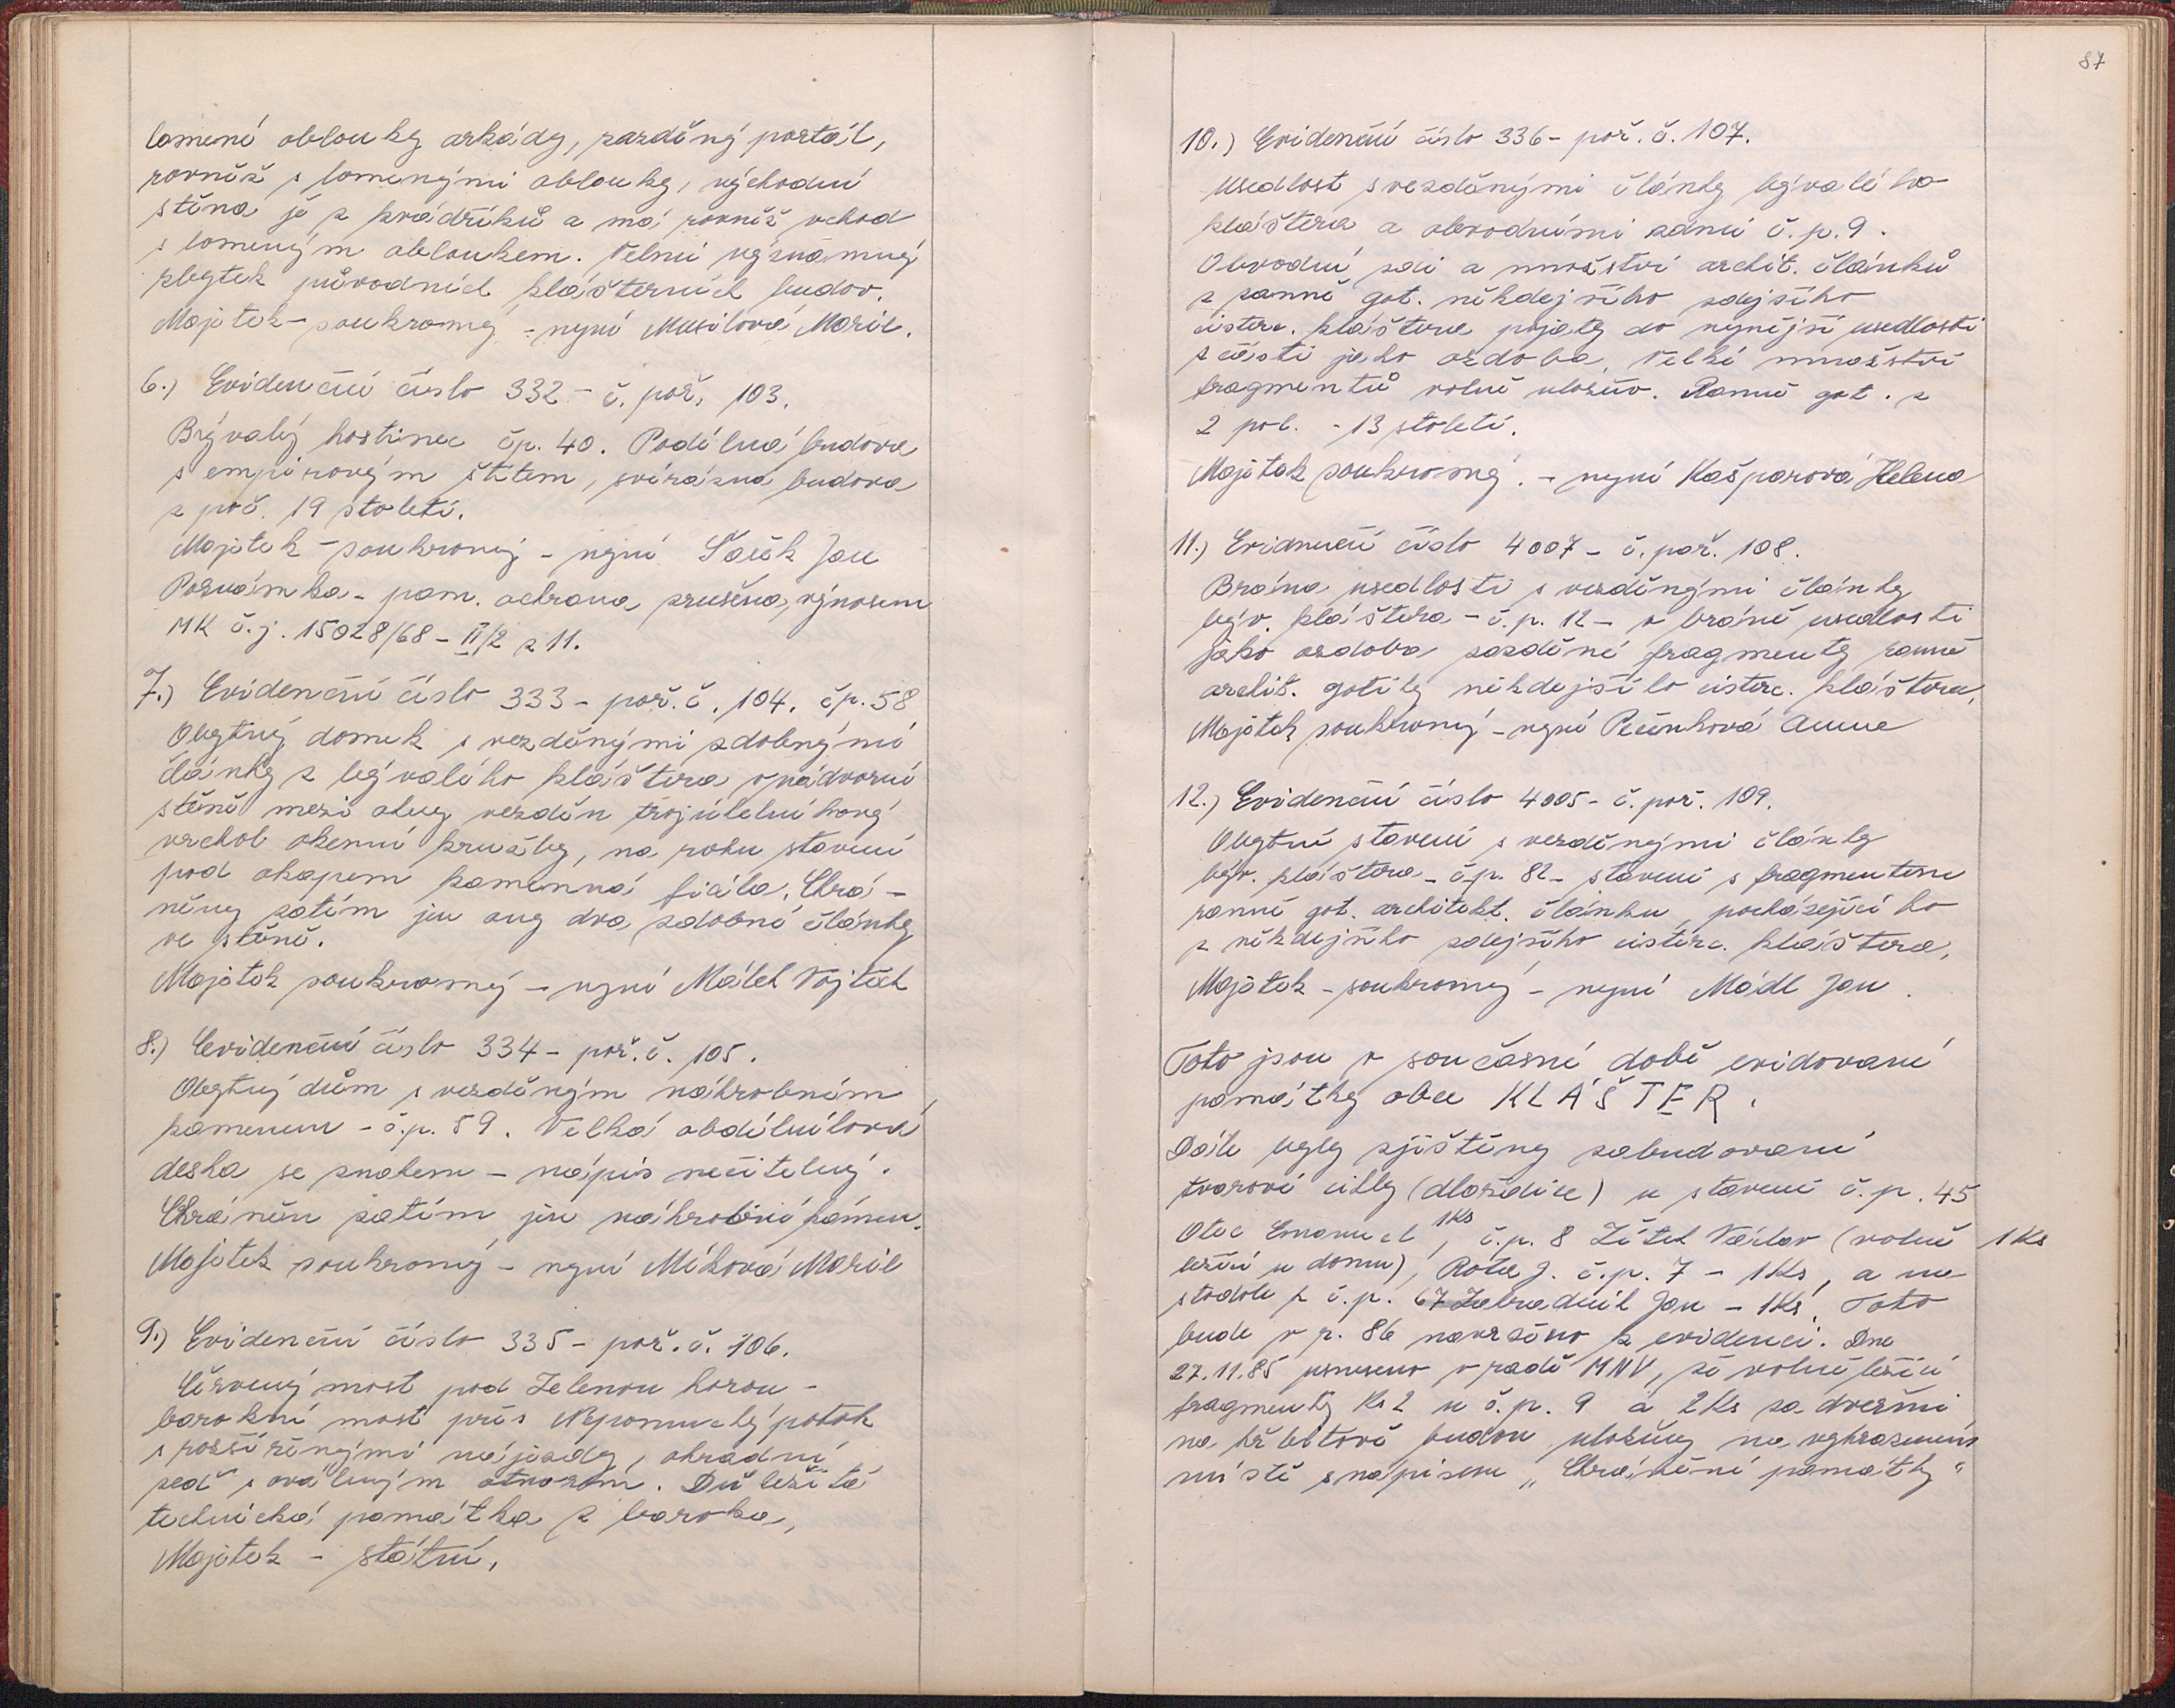 lomené obloučky arkády, zazděný portál,
rovněž s lomenými obloučky, východní
stěna je z kvádříků a má rovněž vchod
s lomeným obloukem. Velmi významný
zbytek původních klášterních budov.
Majetek - soukromý - nyní Musilová Marie.
6.) Evidenční číslo 332 - č. poř. 103.
Bývalý hostinec čp. 40. Podélná budova
s empirovým štítem, svérázná budova
z poč. 19 století.
Majetek - soukromý - nyní Jan
Poznámka - pam. ochrana zrušena, výnosem
MK č.j. 15028/68 - II/2 z 11.
7.) Evidenční číslo 333 - poř. č. 104. čp. 58
Obytný domek s vezděnými zdobnými
články z bývalého kláštera v nádvorní
stěně mezi okny vezděn trojúhelníkový
vrchol okenní kružby, na rohu stavení
pod okapem kamenná fiála. Chrá-
něny zatím jen ony dva zdobné články
ve stěně.
Majetek soukromý - nyní Málek Vojtěch
8.) Evidenční číslo 334 - poř. č. 105.
Obytný dům s vezděným náhrobním
kamenem - č.p. 59. Velká obdélníková
deska se znakem - nápis nečitelný.
Chráněn zatím jen náhrobní kámen.
Majetek soukromý - nyní Míková Marie
9.) Evidenční číslo 335 - poř. č. 106.
Červený most pod Zelenou horou -
barokní most přes Nepomucký potok
s rozšířenými nájezdy, ohradní
zeď s oválným otvorem. Důležitá
technická památka z baroka,
Majetek - státní,
87
10.) Evidenční číslo 336 - poř. č. 107.
Usedlost s vezděnými články bývalého
kláštera a obvodními zdmi č. p. 9.
Obvodní zdi a množství archit. článků
z ranně got. někdejšího zdejšího
cisterc. kláštera pojaty do nynější usedlosti
z části jako ozdoba. Velké množství
fragmentů volně uloženo. Ranně got. z
2 pol. - 13 století.
Majetek soukromý. - nyní Kašparová Helena
11.) Evidenční číslo 4007 - č. poř. 108.
Brána usedlosti s vezděnými články
býv. kláštera - č.p. 12 - v bráně usedlosti
jako ozdoba zazděné fragmenty ranně
archit. gotiky někdejšího cisterc. kláštera,
Majetek soukromý - nyní Pečínková Anna
12.) Evidenční číslo 4005 - č. poř. 109.
Obytné stavení s vezděnými články
býv. kláštera - č.p. 82 - stavení s fragmentem
ranně got. architekt. článku, pocházejícího
z někdejšího zdejšího cisterc. kláštera,
Majetek - soukromý - nyní Mádl Jan.
Toto jsou v současné době evidované
památky obce KLÁŠTER.
Dále byly zjištěny zabudované
tvarové cihly (dlaždice) u stavení č. p. 45
Otec Emanuel 1Ks, č.p. 8 Žitek Václav (volně 1 Ks
ležící u domu), Rota J. č.p. 7 - 1Ks, a ve
stodole z č.p. 67 Zahradník Jan - 1Ks. Toto
bude v r. 86 navrženo k evidenci. Dne
27.11.85 usneseno v radě MNV, že volně ležící
fragmenty Ks 2 u č. p. 9 a 2Ks za dveřmi
na hřbitově budou uloženy na vyhrazeném
místě s nápisem „Chráněné památky"